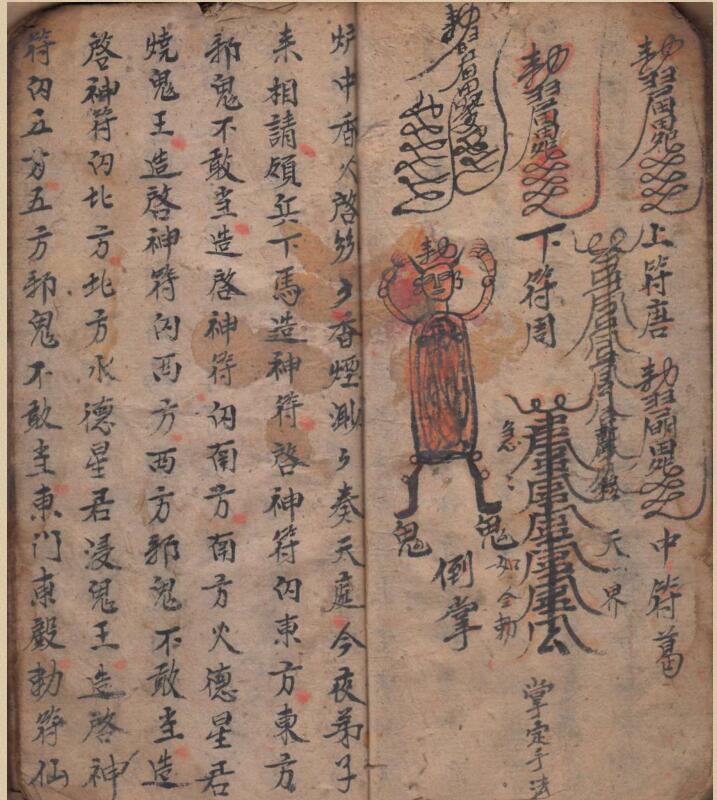 上符唐
中符葛
下符周
天界
勅
鬼
鬼
急〻如令勅
倒掌
掌定手法
炉中香火啓紛々香煙渺々奏天庭今夜弟子
来相請領兵下馬造神符啓神符内東方東方
邪鬼不敢当造啓神符内南方南方火德星君
燒鬼王造啓神符内西方西方邪鬼不敢当造
啓神符内北方北方水德星君浸鬼王造啓神
符内五方五方邪鬼不敢当東門東殿勅符仙